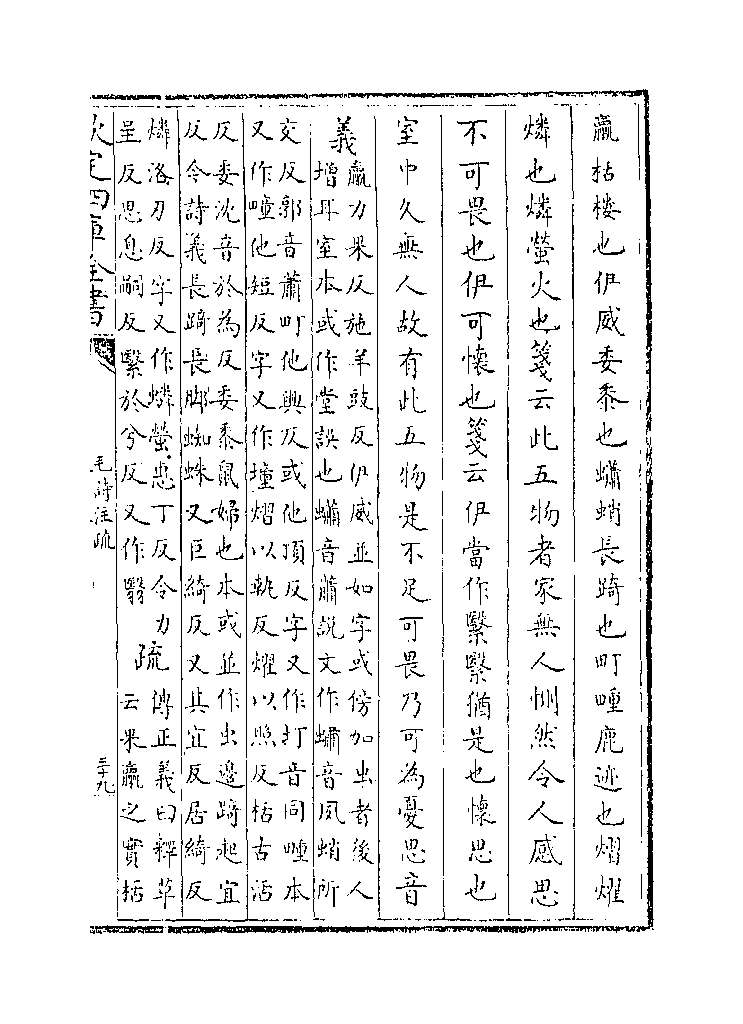 臝栝樓也伊威委黍也蠨蛸長踦也町畽鹿迹也熠燿
燐也燐螢火也箋云此五物者家無人惻然令人感思
不可畏也伊可懷也箋云伊當作繄繄猶是也懷思也
室中久無人故有此五物是不足可畏乃可為憂思音
義
臝力果反施羊豉反伊威並如字或傍加虫者後人
增耳室本或作堂誤也蠨音蕭說文作蟰音夙蛸所
交反郭音蕭町他典反或他頂反字又作打音同畽本
又作疃他短反字又作墥熠以執反燿以照反栝古活
反委沈音於為反委黍鼠婦也本或並作虫邊踦起宜
反今詩義長踦長脚蜘蛛又巨綺反又其宜反居綺反
燐洛刃反字又作燐螢惠丁反令力
呈反思息嗣反繄於兮反又作翳
疏
傳正義曰釋草
云果臝之實栝
欽定四庫全書
毛詩注疏
三十九